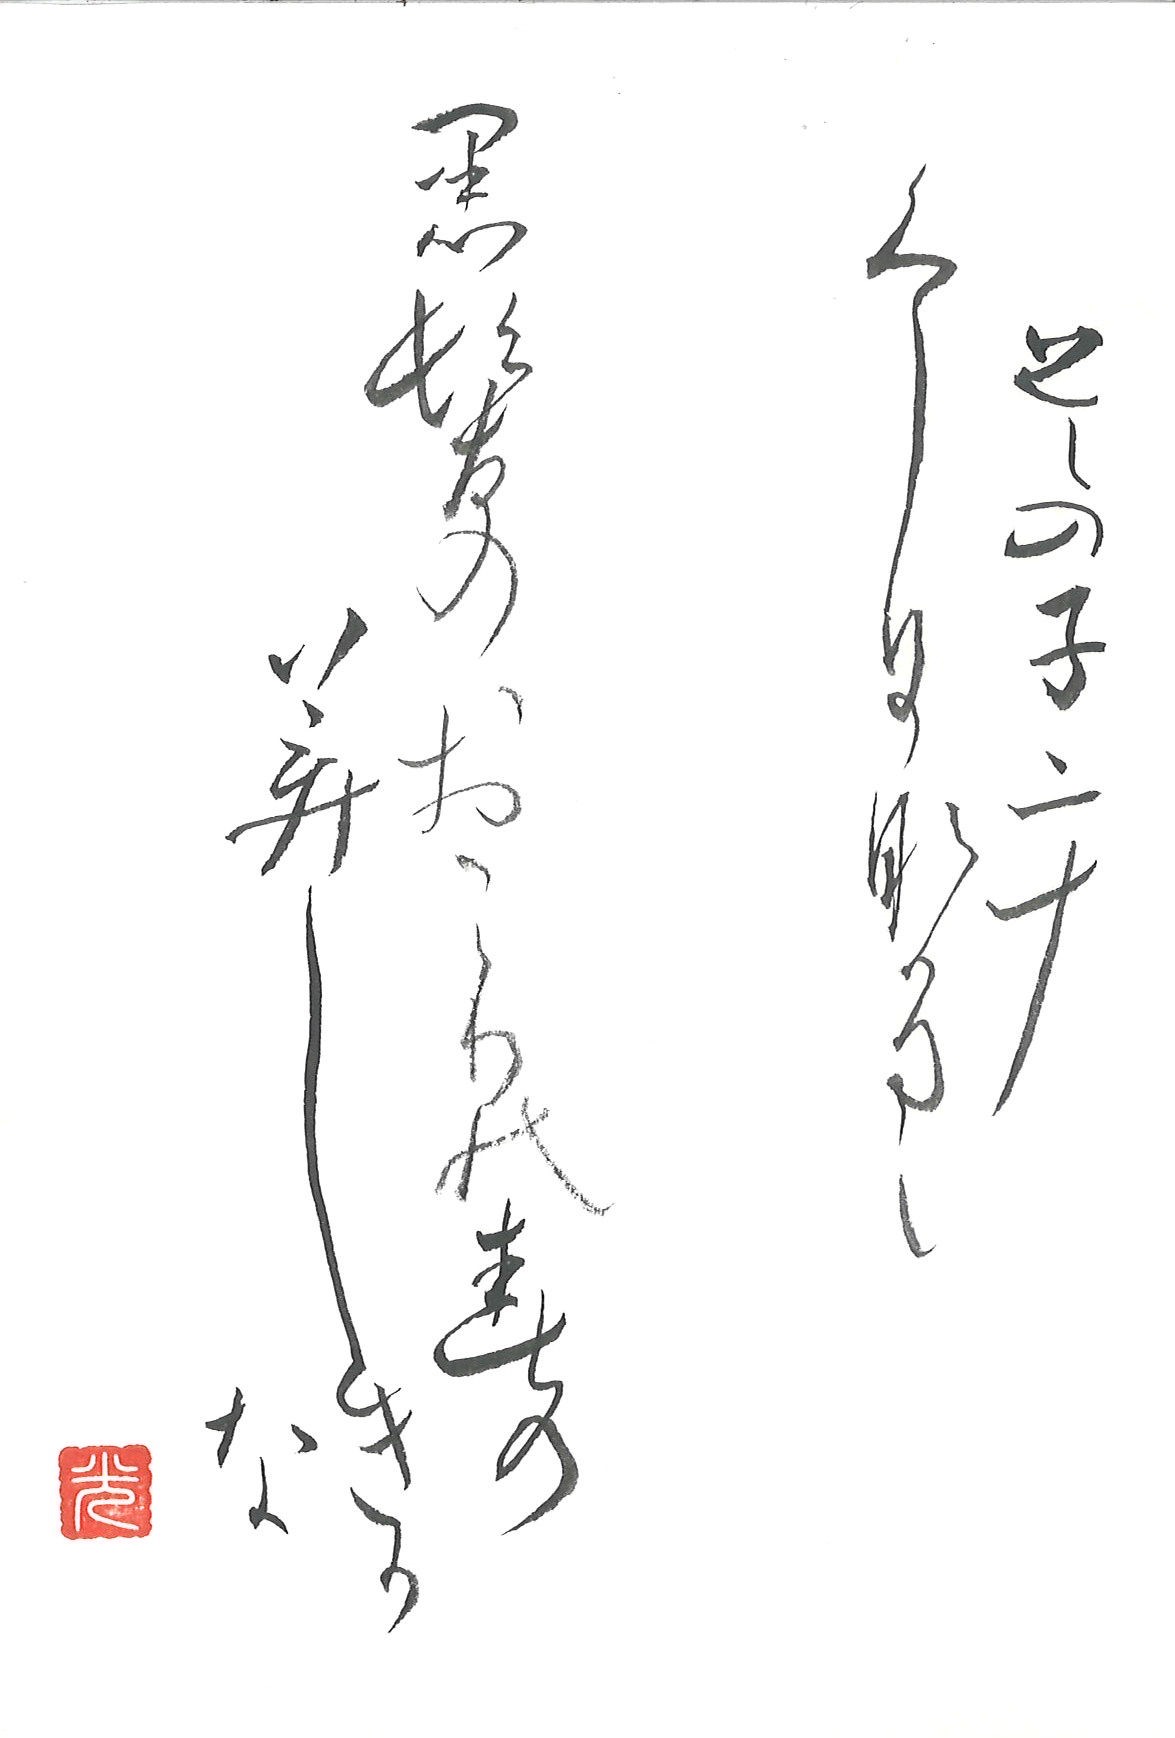 その子二十
くしにながるゝ
黒髪のおごりの春の
美しきかな
光